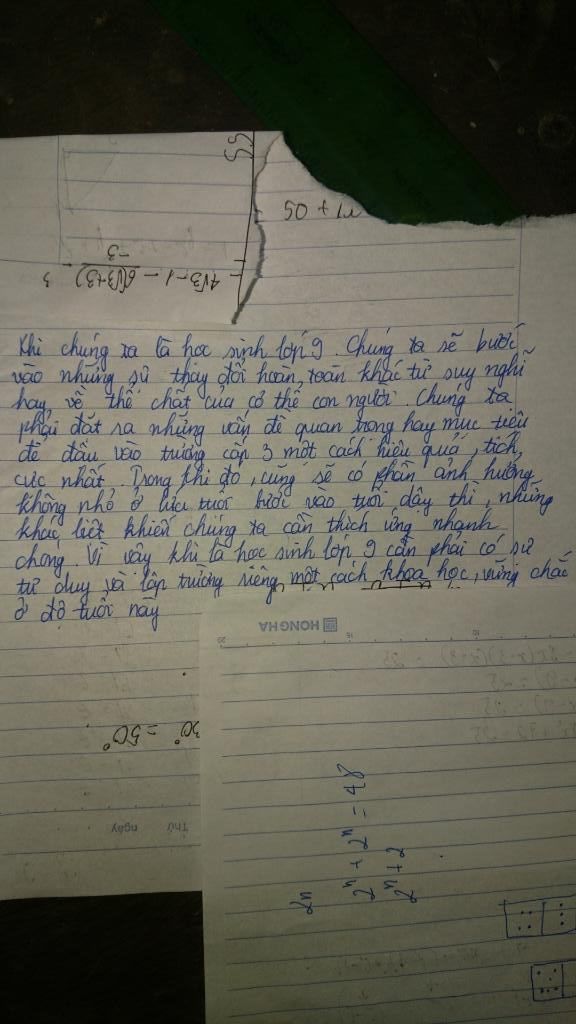 55
4√3 - 1 - 6(√3+3) / -3 = 3
+ 05
Khi chúng ta là học sinh lớp 9. Chúng ta sẽ bước
vào những sự thay đổi hoàn toàn khác từ suy nghĩ
hay về thể chất của cơ thể con người. Chúng ta
phải đặt ra những vấn đề quan trọng hay mục tiêu
để đầu vào trường cấp 3 một cách hiệu quả, tích
cực nhất. Trong khi đó, cũng sẽ có phần ảnh hưởng
không nhỏ ở lứa tuổi bước vào tuổi dậy thì, những
khác biệt khiến chúng ta cần thích ứng nhanh
chóng. Vì vậy khi là học sinh lớp 9 cần phải có sự
tư duy và lập trường riêng một cách khoa học, vững chắc
ở độ tuổi này
HONG HA
30° = 50°
Thứ ngày
2n
2ⁿ + 2ⁿ = 48
2ⁿ + 2